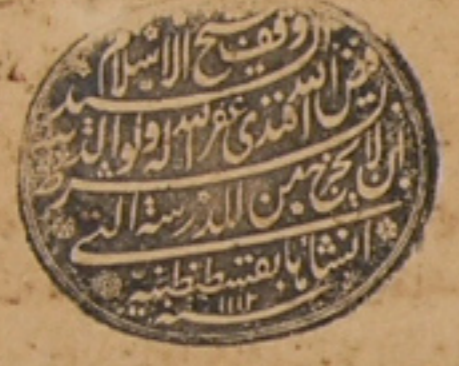 وقف شيخ الاسلام
السيد فيض الله افندى غفر الله له ولوالديه
بشرط ان لا يخرج من المدرسة التى
انشاها بقسطنطنيّه
سنه ١١١٢